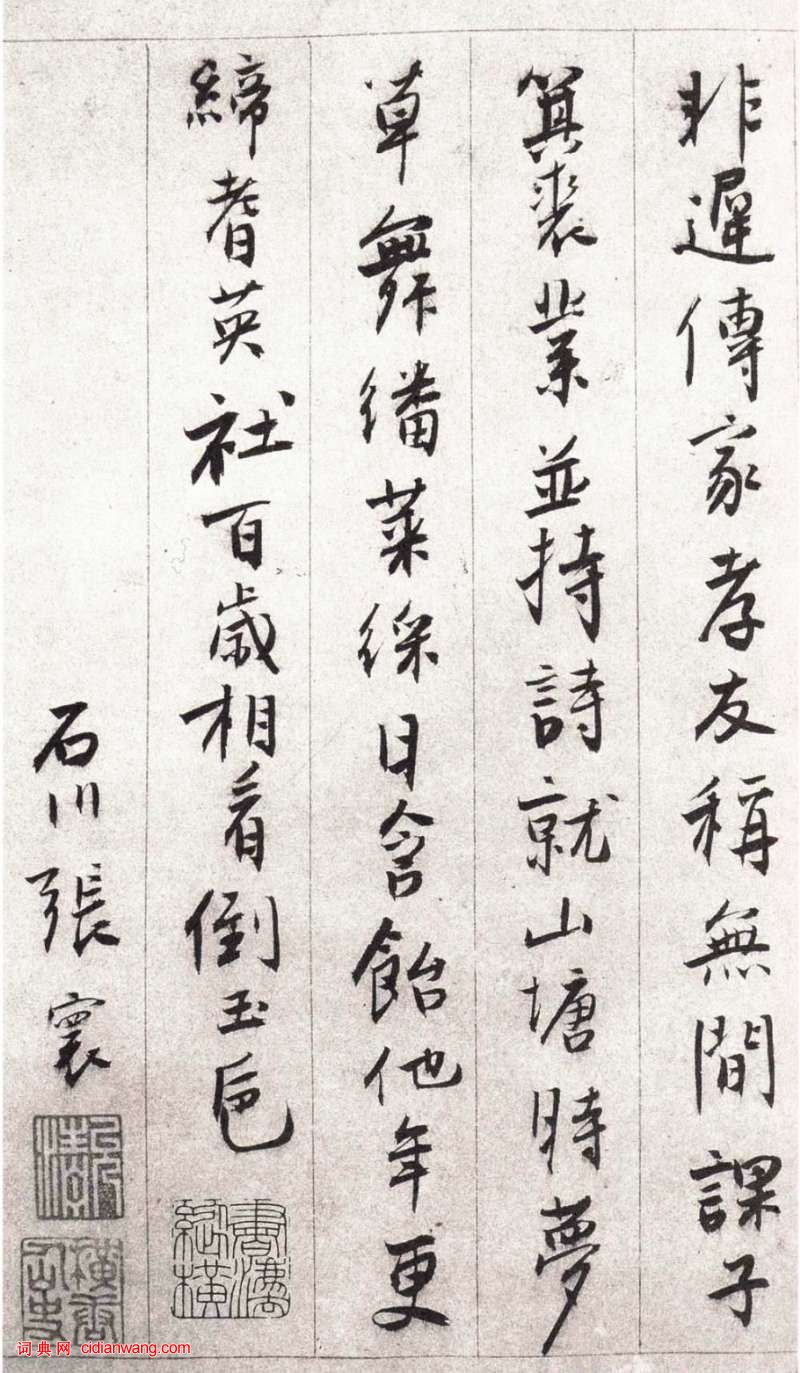 非遲傳家孝友稱無間課子
箕裘業並持詩就山塘時夢
草舞繙萊綵日含飴他年更
締耆英社百歲相看倒玉巵
石川張寰
詞典网 cidianwang.com